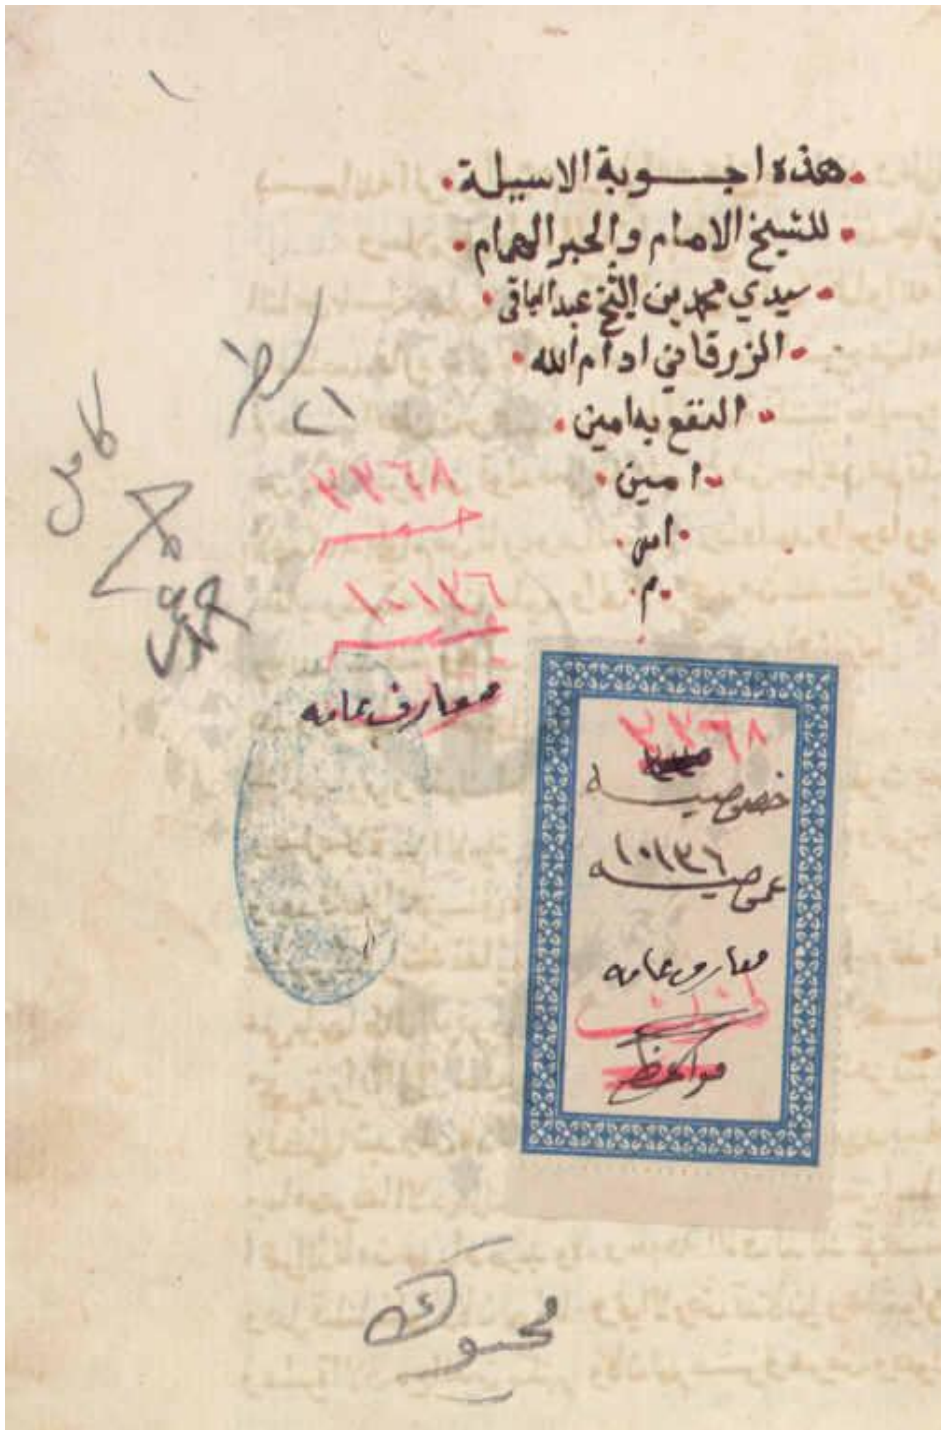 ١
هذه اجوبة الاسيلة
للشيخ الامام والحبر الهمام
سيدي محمد بن الشيخ عبد الباقي
الزرقاني ادام الله
النفع به امين
امين
امى
م
٢١
كامل
٣٣٦٨
١٠١٣٦
معارف عامه
٣٣٦٨
خصوصيه
١٠١٣٦
عموصيه
معارف عامه
مواعظ
محبوك